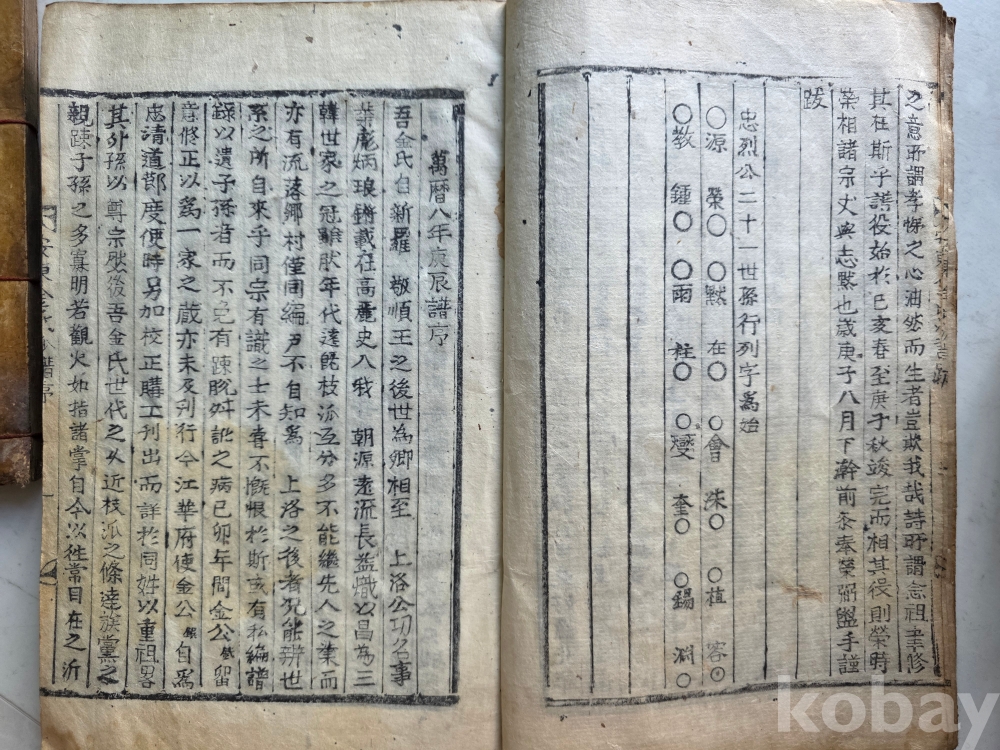 之意所謂孝悌之心油然而生者豈欺我哉詩所謂念祖聿修
其在斯乎譜役始於己亥春至庚子秋竣完而相其役則榮時
榮相諸宗丈與志黙也歳庚子八月下澣前叅奉榮弼盥手謹
跋
忠烈公二十一世孫行列字爲始
○源 榮○ ○黙 在○ ○會 洙○ ○植 容○
○教 鍾○ ○雨 柱○ ○燮 奎○ ○錫 淵○
萬曆八年庚辰譜序
吾金氏自新羅 敬順王之後世為卿相至 上洛公功名事
業彪炳琅鏘載在高麗史入我 朝源遠流長益熾以昌為三
韓世家之冠雖肰年代逺枝派互分多不能繼先人之業而
亦有流落鄉村僅同編戶不自知爲 上洛之後者況能辨世
系之所自來乎同宗有識之士未嘗不慨恨於斯或有私編譜
錄以遺子孫者而不免有踈脫舛訛之病已卯年間金公 留
意修正以爲一家之蔵亦未及刋行今江華府使金公 自爲
忠清道都度使時另加校正購工刋出而詳於同姓以重祖畧
其外孫以尊宗肰後吾金氏世代之久近枝派之條達族黨之
親踈子孫之多寡明若觀火如指諸掌自今以徃常目在之沂
安東金氏 譜序
kobay